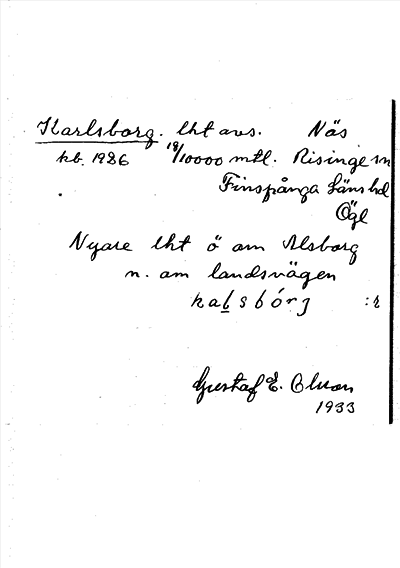 Karlsborg. lht avs. Näs
kb. 1926 18/10000 mtl. Risinge sn
Finspånga läns hd
Ögl
Nyare lht ö om Alsborg
n. om landsvägen
kaḷsbórj :r
Gustaf E. Olson
1933